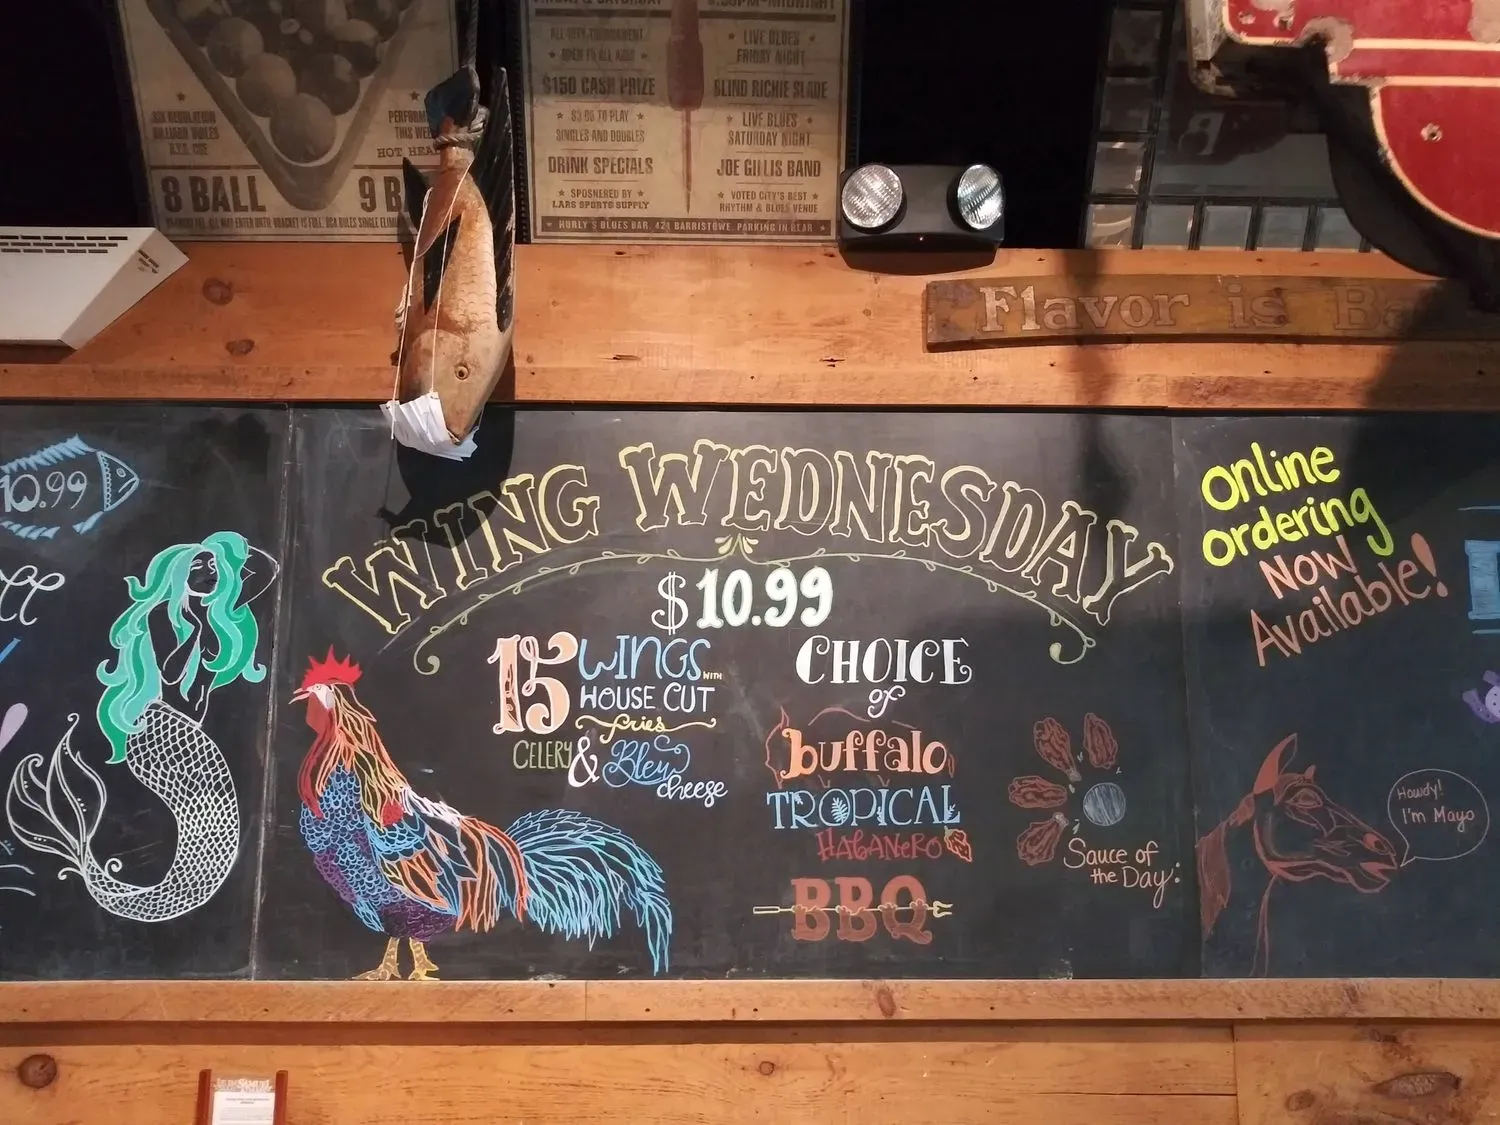 ALL CITY TOURNAMENT
OPEN TO ALL AGES
$150 CASH PRIZE
$3.00 TO PLAY
SINGLES AND DOUBLES
DRINK SPECIALS
SPOSNERED BY
LARS SPORTS SUPPLY
LIVE BLUES
FRIDAY NIGHT
BLIND RICHIE SLADE
LIVE BLUES
SATURDAY NIGHT
JOE GILLIS BAND
VOTED CITY'S BEST
RHYTHM & BLUES VENUE
HURLY'S BLUES BAR, 424 BARRISTOWE, PARKING IN REAR
PERFORM
THIS WEE
HOT HEA
8 BALL
9 B
Flavor is Ba
10.99
WING WEDNESDAY
$10.99
15 WINGS WITH
HOUSE CUT
fries
CELERY & Bleu
cheese
CHOICE
of
buffalo
TROPICAL
HABANERO
BBQ
Sauce of
the Day:
Online
ordering
Now
Available!
Howdy!
I'm Mayo